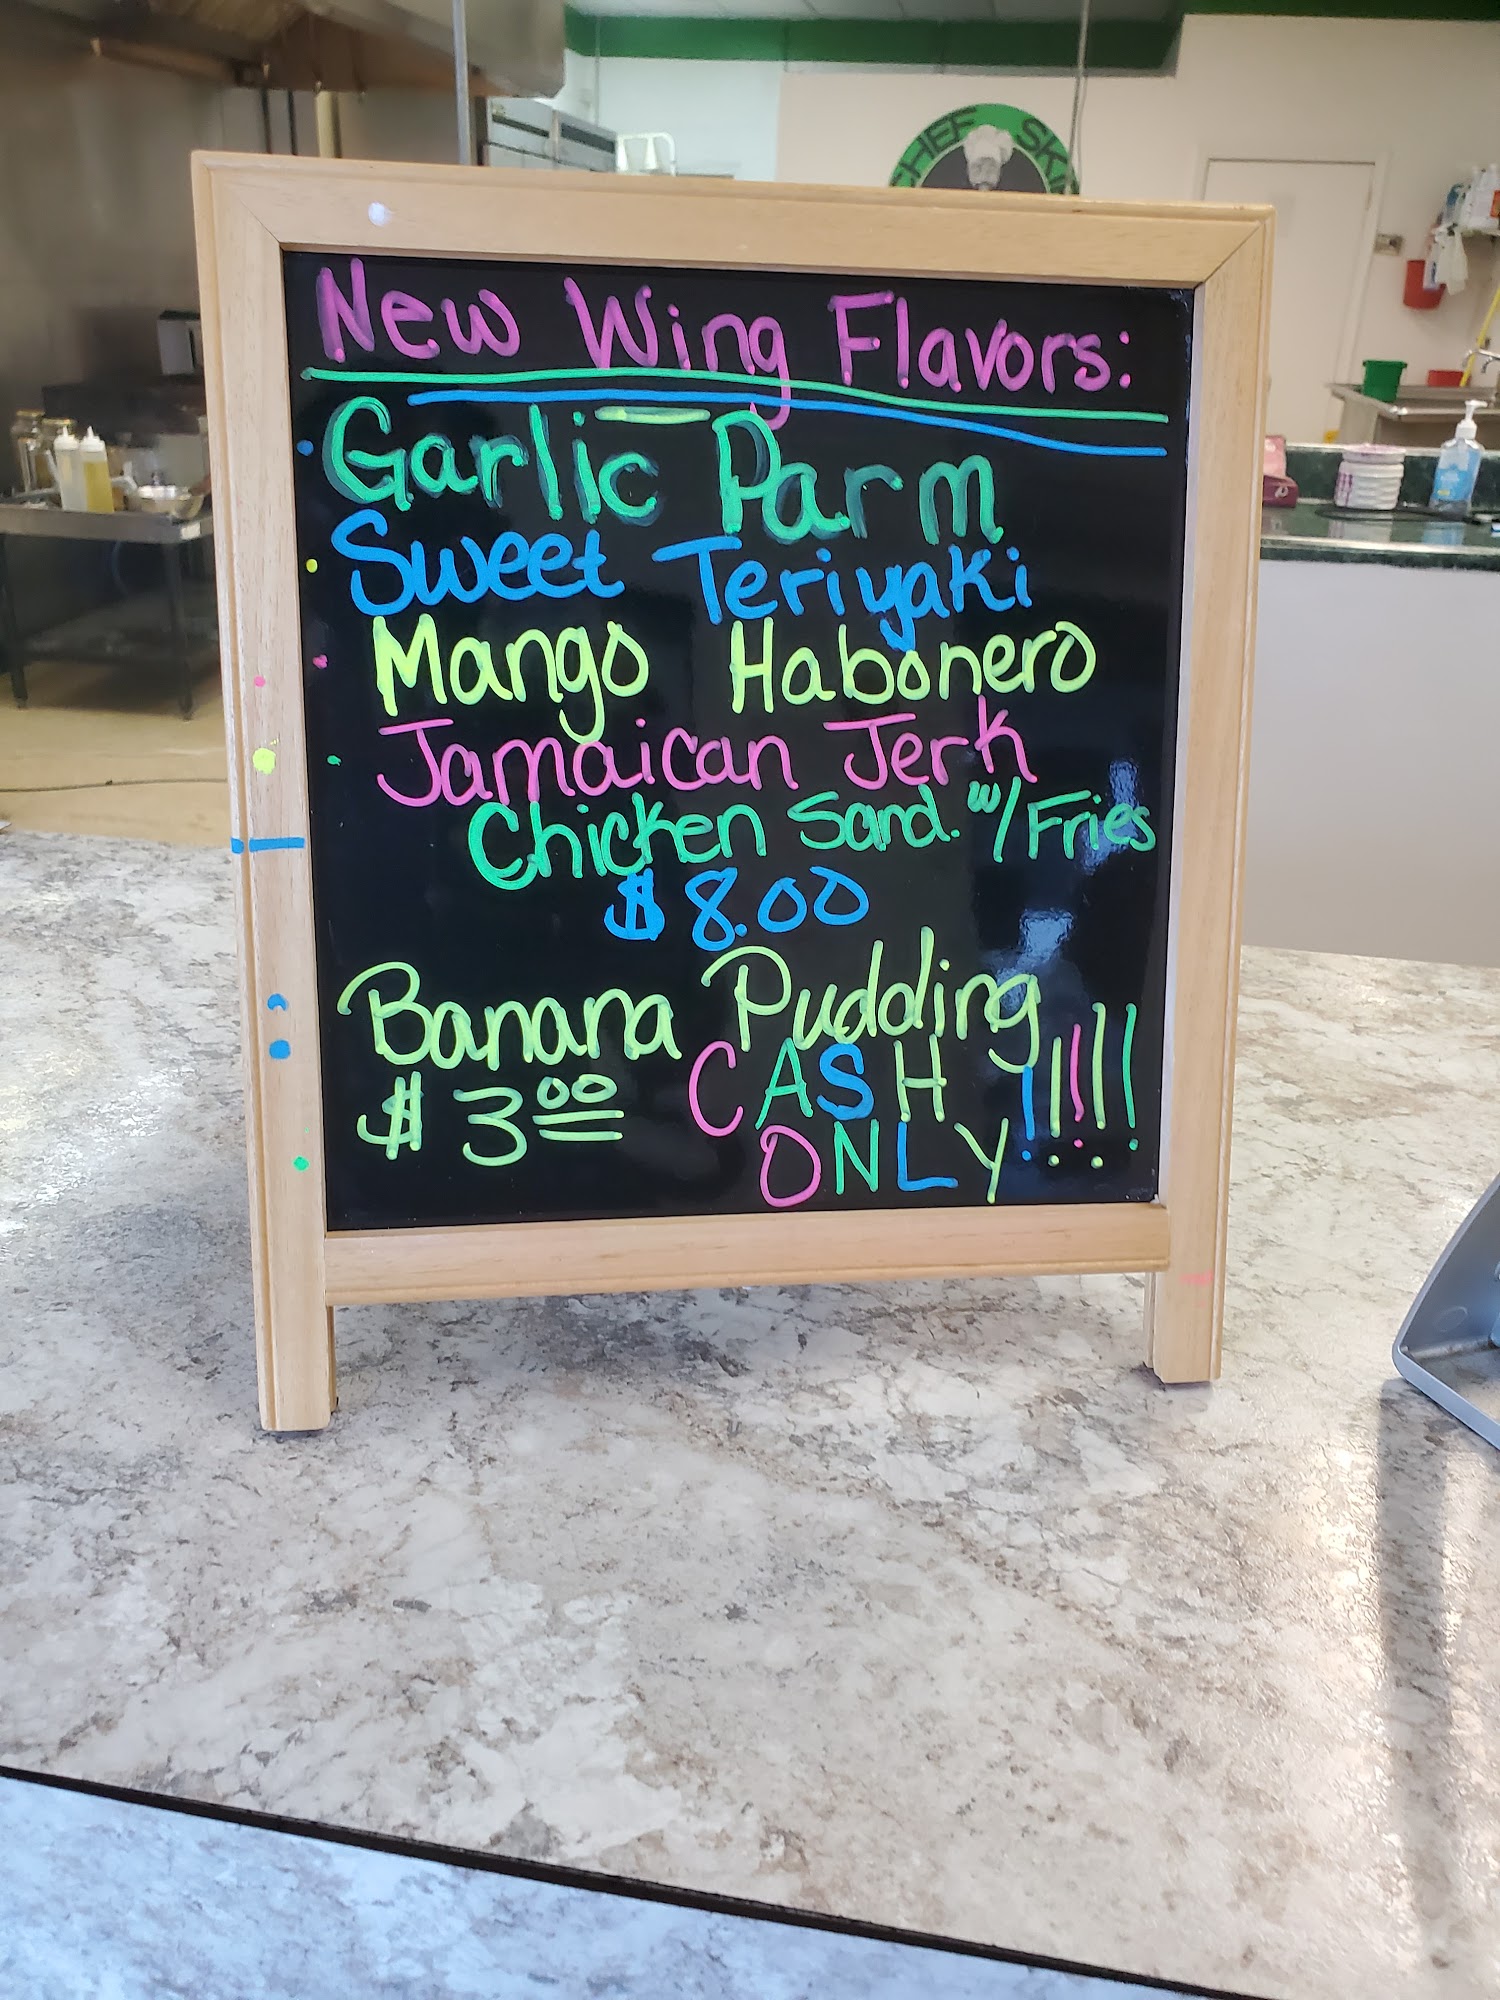 CHEF SKI
New Wing Flavors:
Garlic Parm
Sweet Teriyaki
Mango Habonero
Jamaican Jerk
Chicken Sand. w/ Fries
$8.00
Banana Pudding
$3.00 CASH
ONLY!!!!!